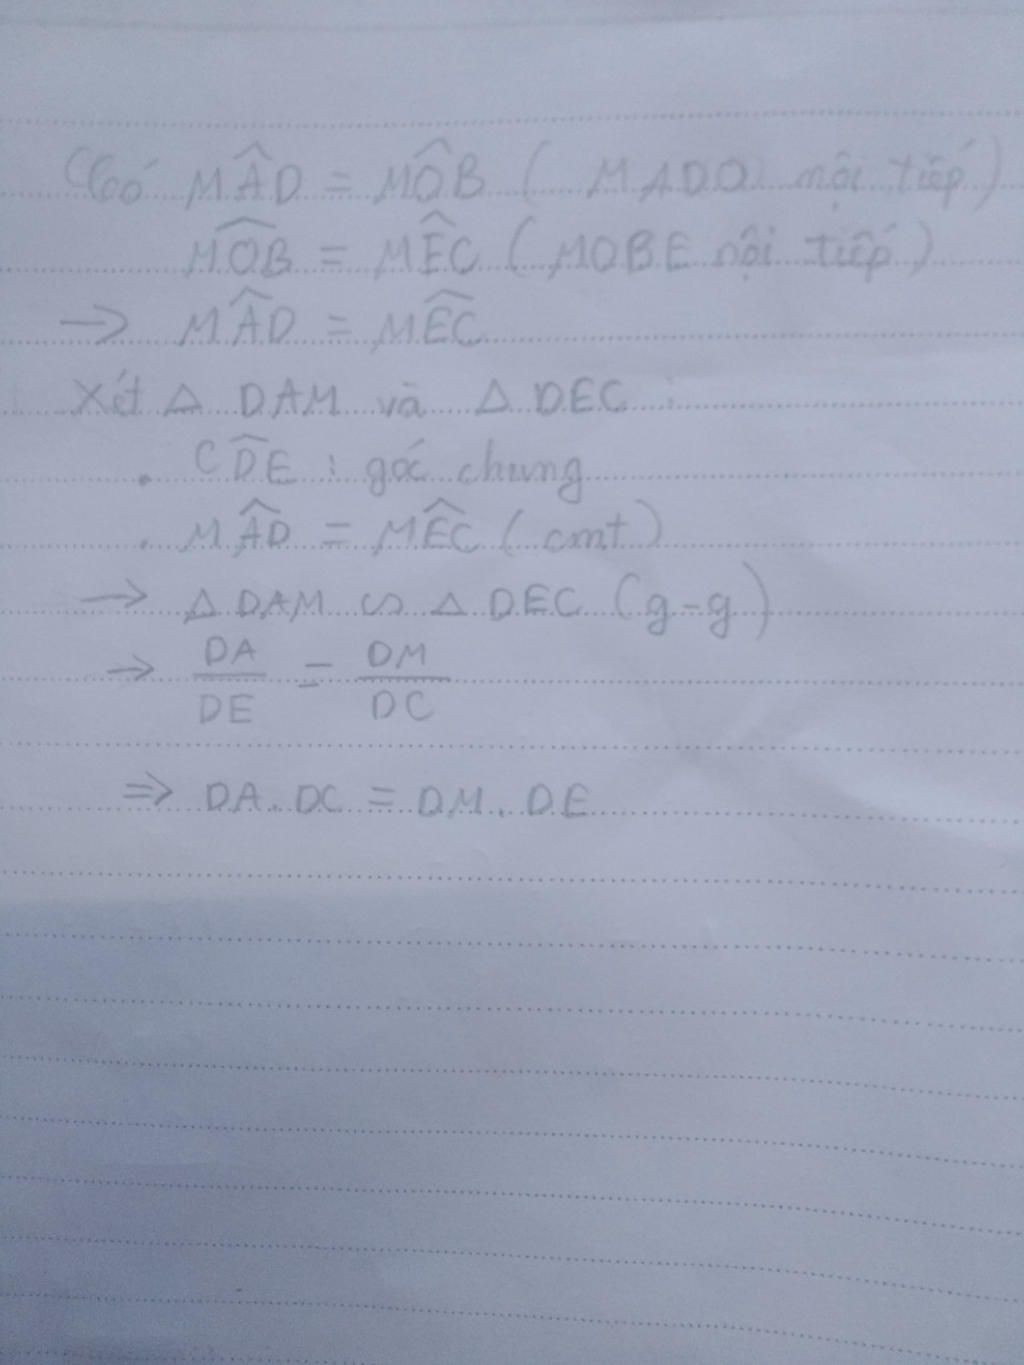 Có MÂD = MÔB ( MADO nội tiếp)
MÔB = MÊC ( MOBE nội tiếp )
→ MÂD = MÊC
Xét △ DAM và △ DEC :
. CD̂E : góc chung
. MÂD = MÊC ( cmt )
→ △ DAM ∽ △ DEC (g-g)
→ DA/DE = DM/DC
⇒ DA.DC = DM.DE